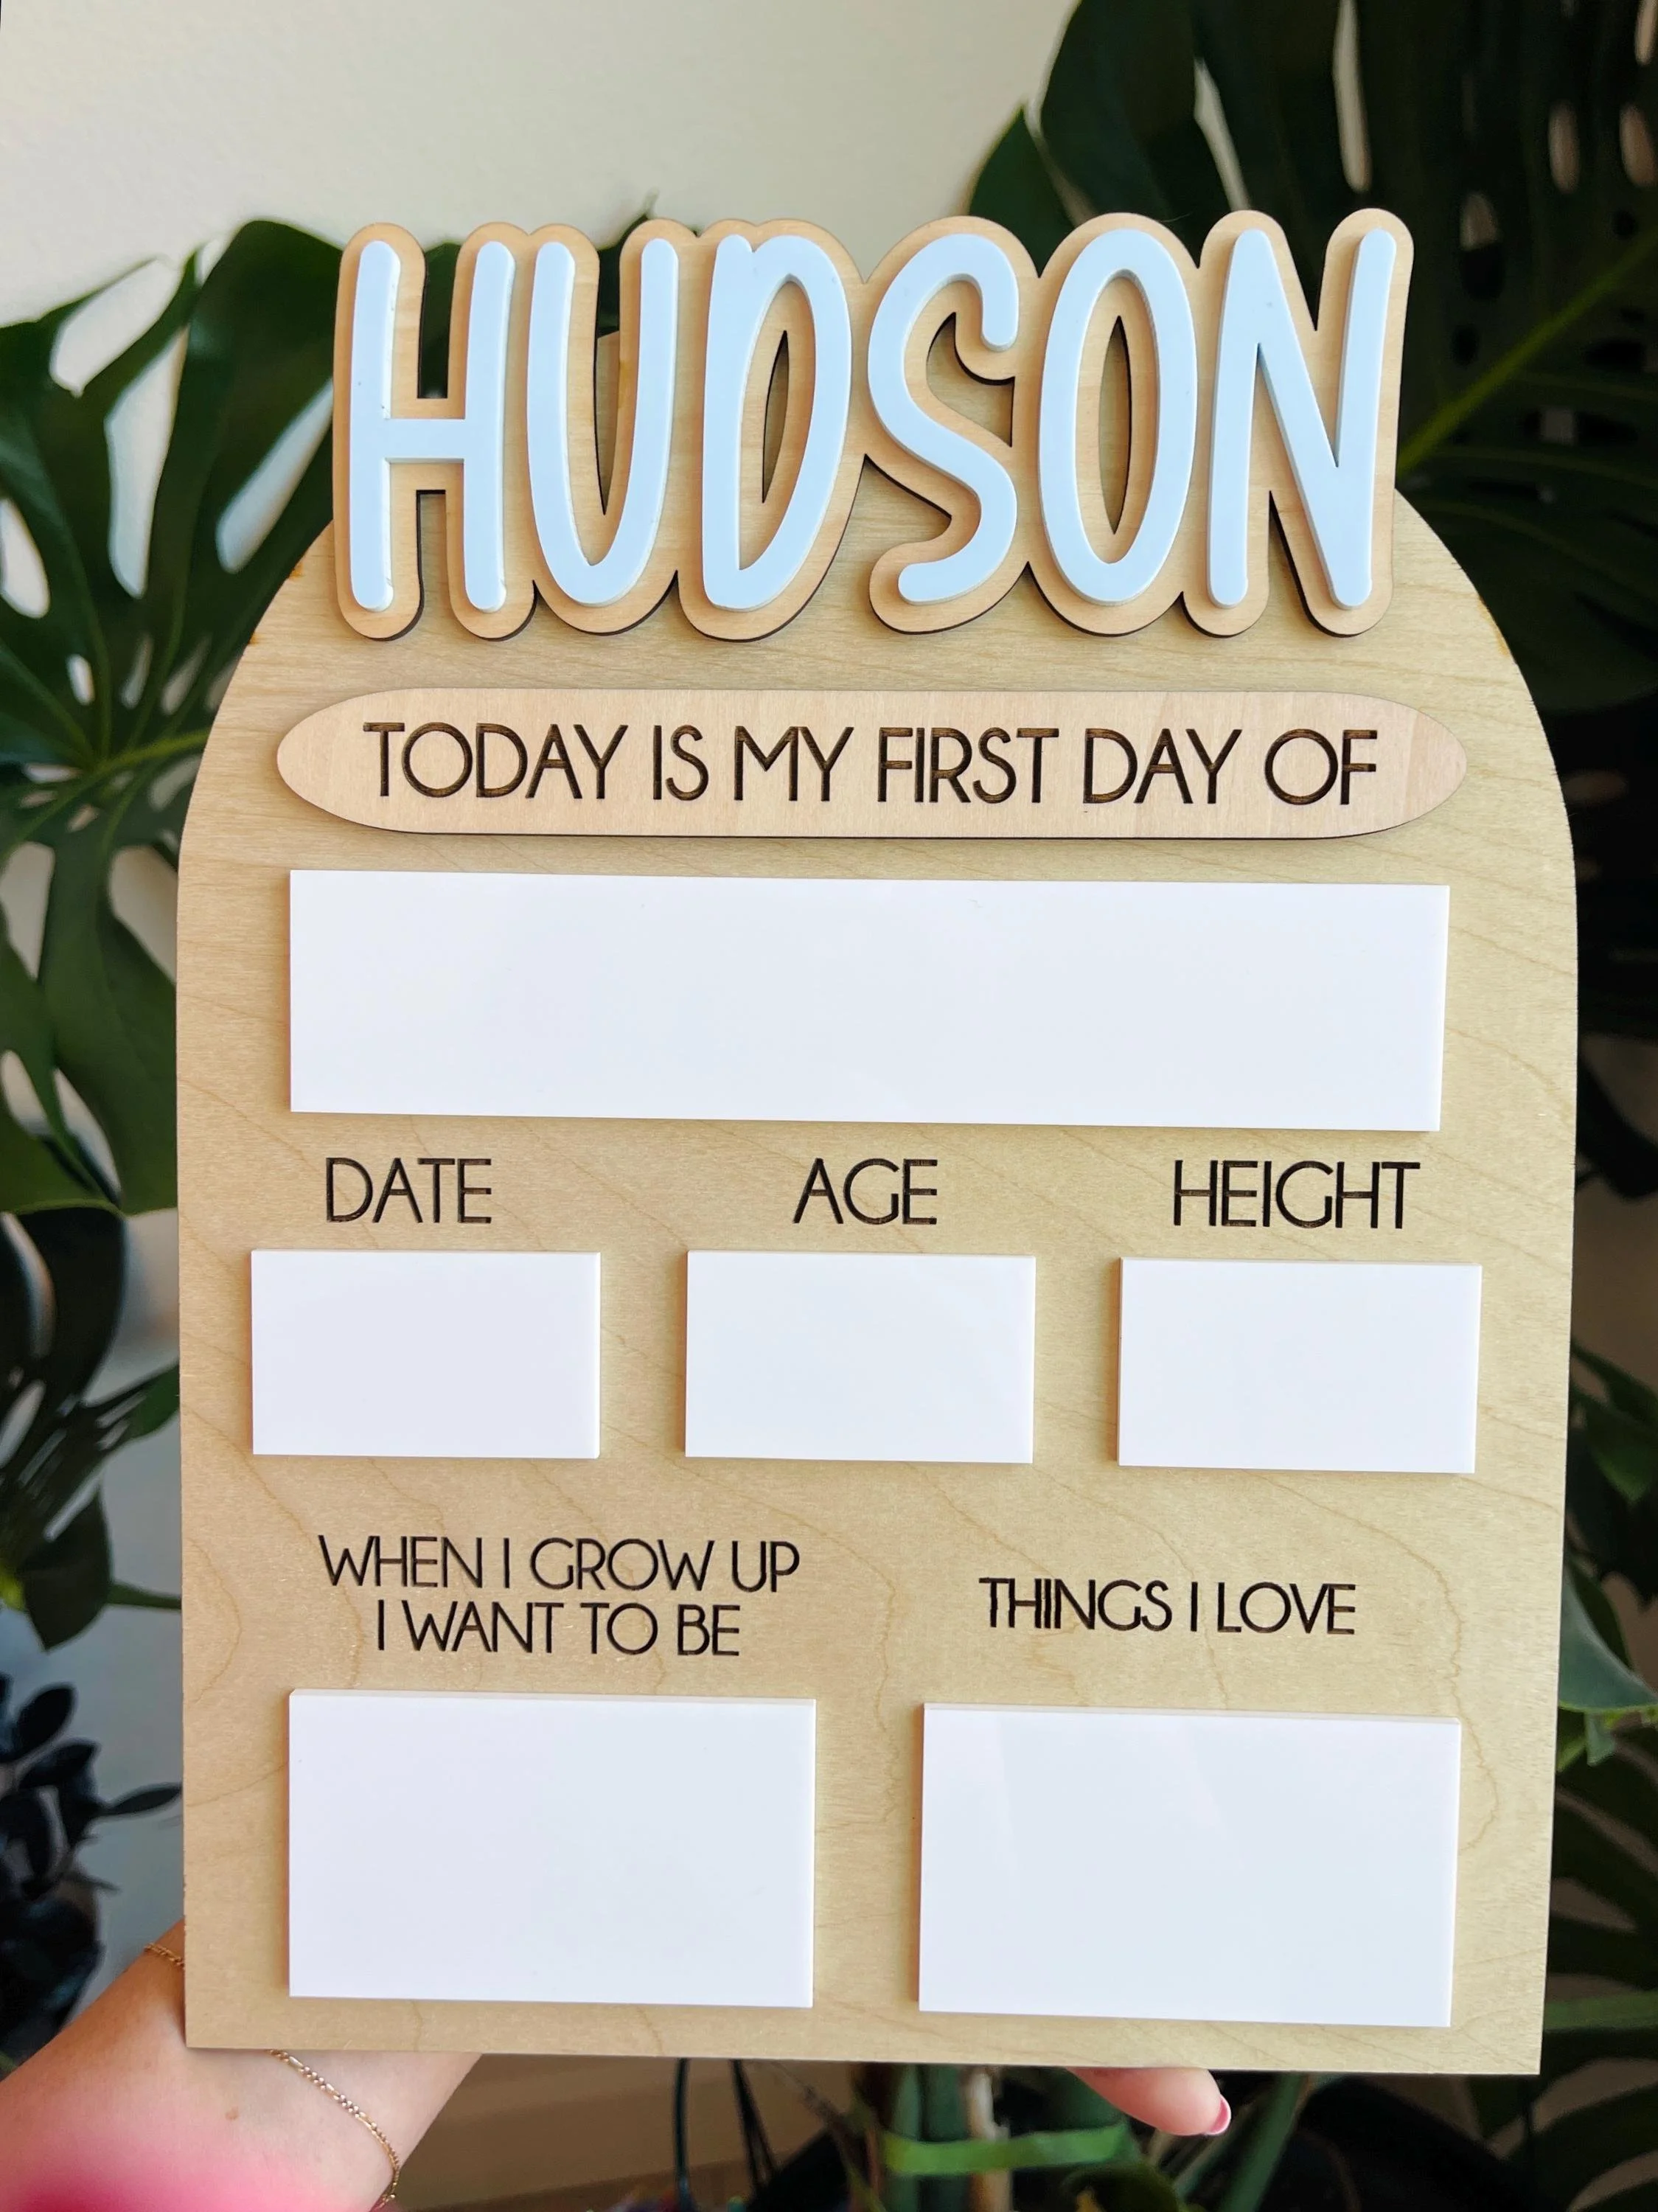 HUDSON
TODAY IS MY FIRST DAY OF
DATE AGE HEIGHT
WHEN I GROW UP
I WANT TO BE
THINGS I LOVE